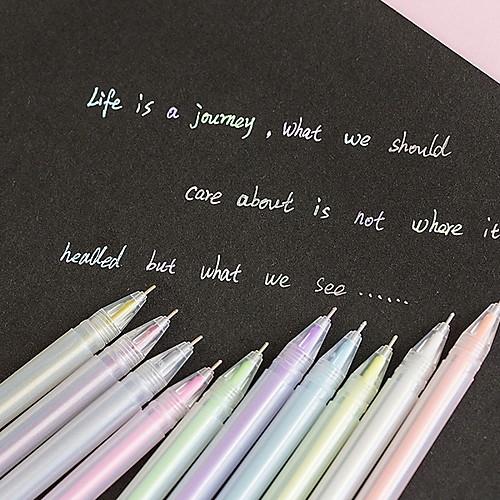 Life is a journey, what we should
care about is not where it
headed but what we see......